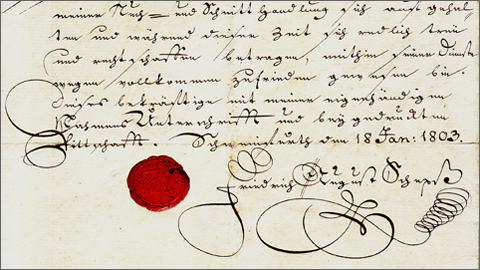 meiner Tuch= und Schnitt Handlung sich aufgehal=
ten und während dieser Zeit sich redlich treu
und rechtschaffen betragen, mithin seiner Dienste
wegen vollkommen zufrieden gewesen bin.
Dieses bekräftige mit meiner eigenhändigen
Nahmens Unterschrifft und beygedruktem
Pittschafft. Schweinfurth den 18 Jan: 1803.
Friedrich August Schepß